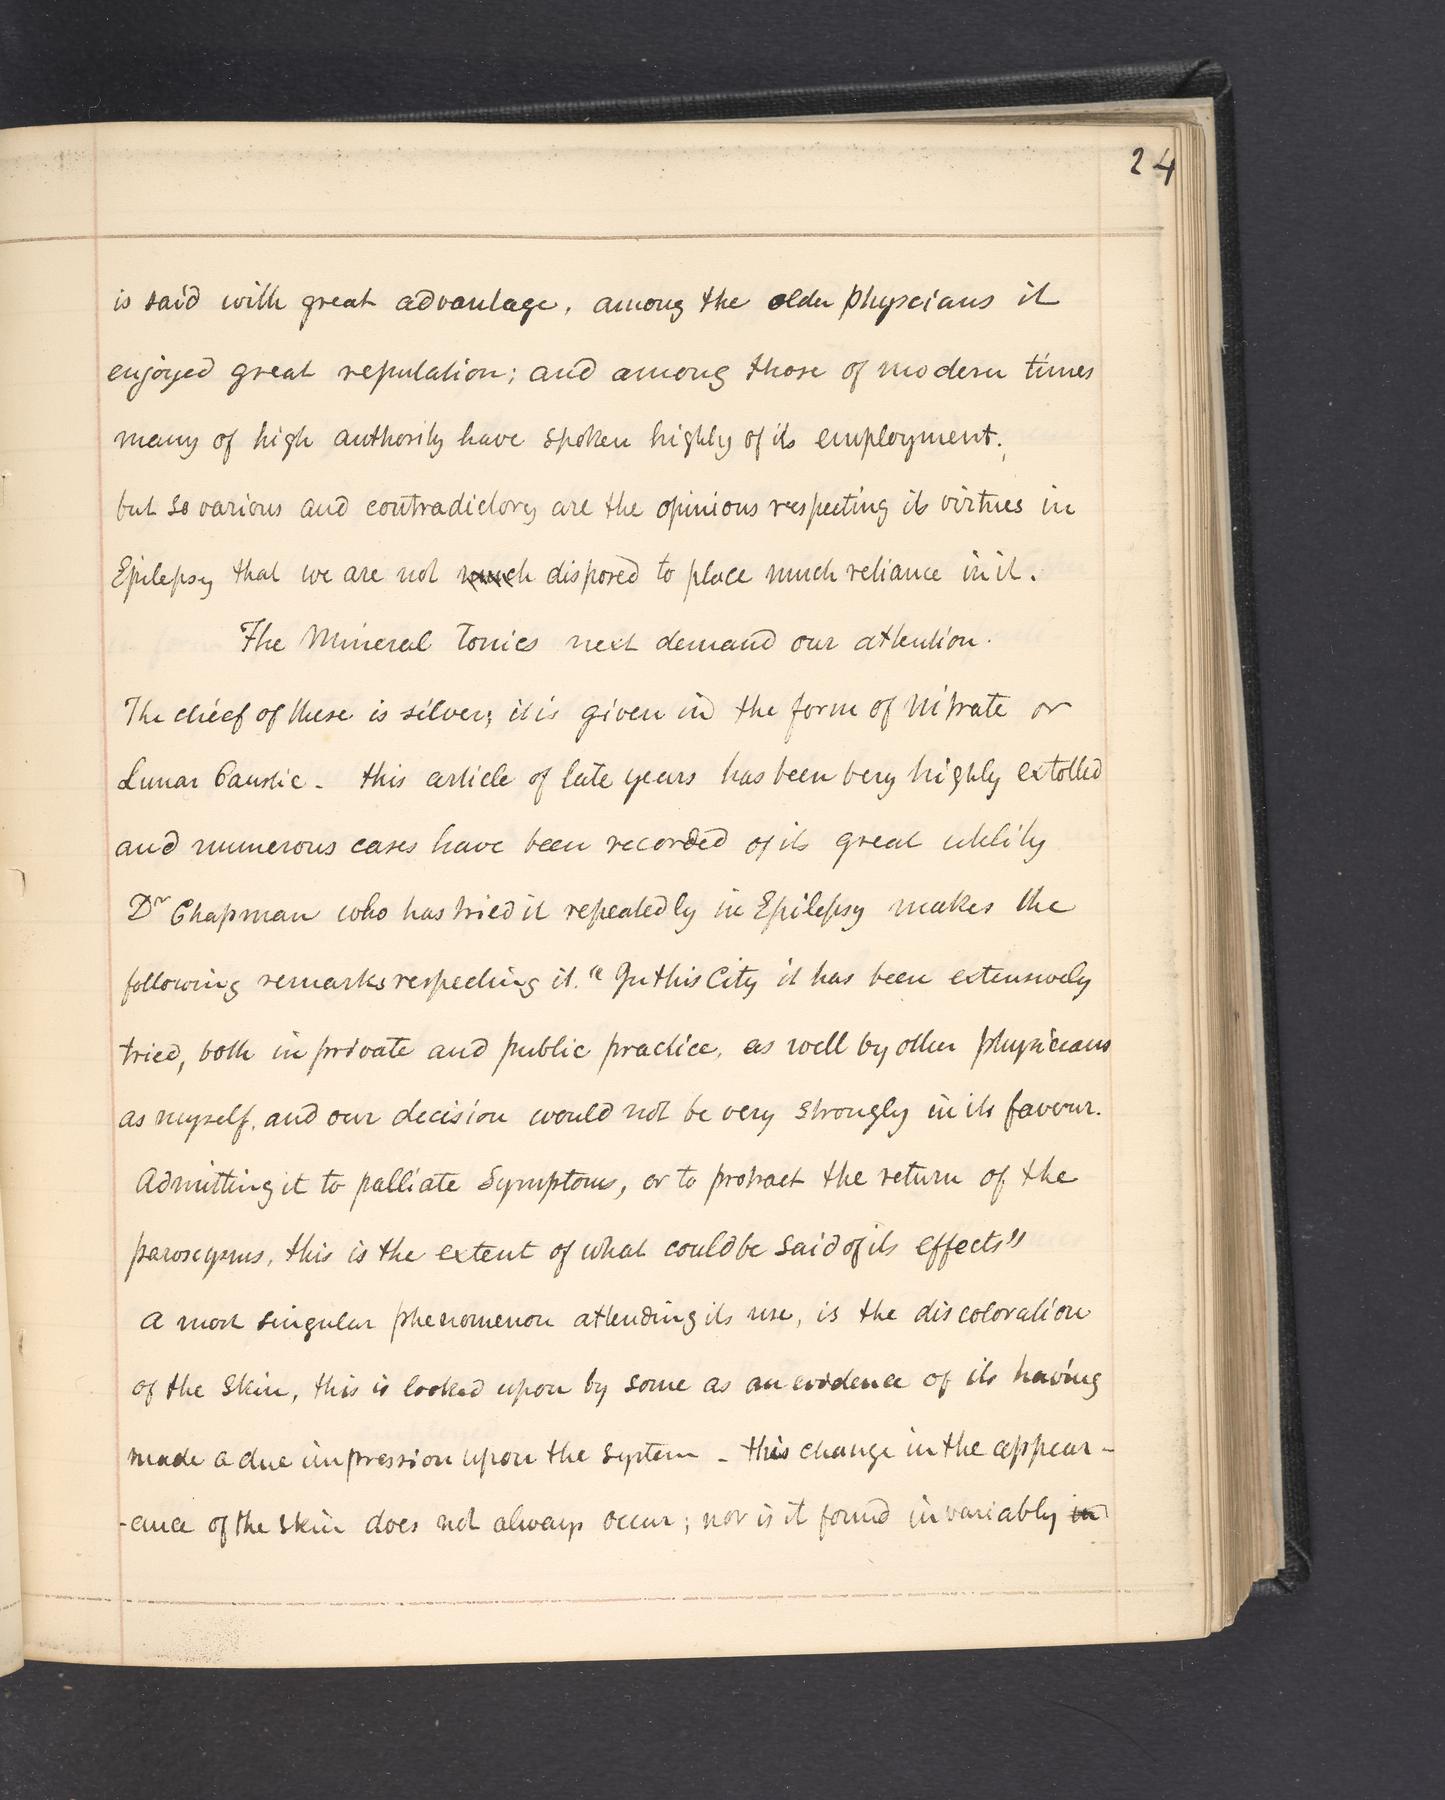 24
is said with great advantage, among the older physcians it
enjoyed great reputation; and among those of modern times
many of high authority have spoken highly of its employment;
but so various and contradictory are the opinions respecting its virtues in
Epilepsy that we are not much disposed to place much reliance in it.
The Mineral Tonics next demand our attention.
The chief of these is silver; it is given in the form of Nitrate or
Lunar Caustic - this article of late years has been very highly extolled
and numerous cases have been recorded of its great utility
Dr Chapman who has tried it repeatedly in Epilepsy makes the
following remarks respecting it. "In this City it has been extensively
tried, both in private and public practice, as well by other physicians
as myself, and our decision would not be very strongly in its favour.
Admitting it to palliate Symptoms, or to protract the return of the
paroxysms, this is the extent of what could be said of its effects"
A most singular phenomenon attending its use, is the discoloration
of the skin, this is looked upon by some as an evidence of its having
made a due impression upon the system - this change in the appear-
-ance of the skin does not always occur; nor is it found invariably in